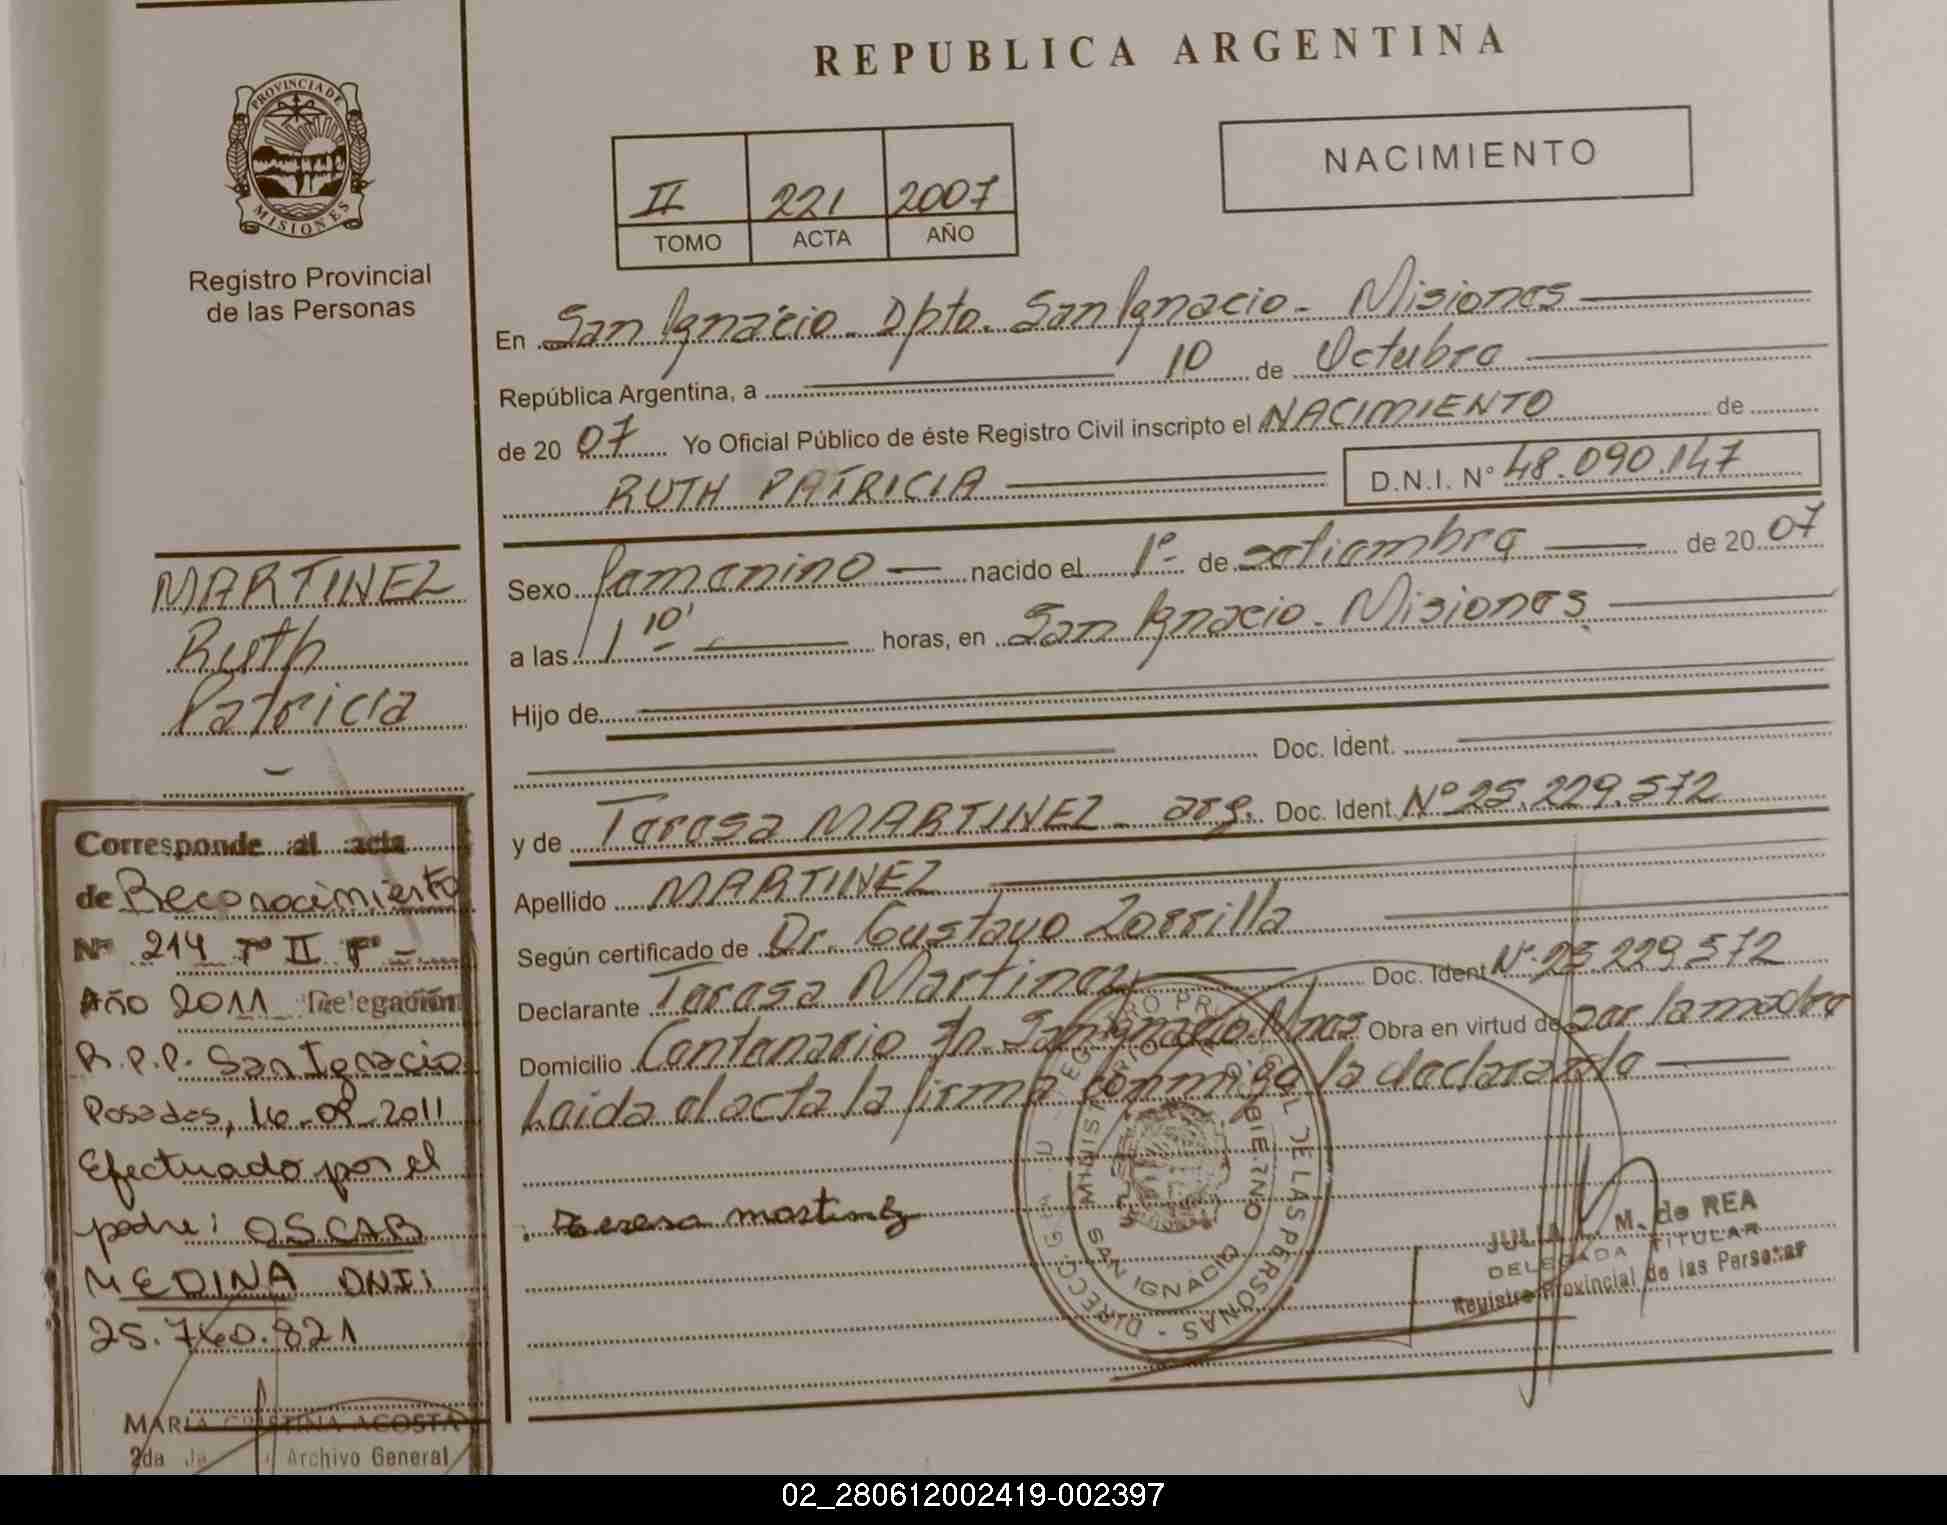 REPUBLICA ARGENTINA
PROVINCIA DE
MISIONES
Registro Provincial
de las Personas
II 221 2007
TOMO ACTA AÑO
NACIMIENTO
En San Ignacio. Dpto. San Ignacio. Misiones
República Argentina, a 10 de Octubre
de 20 07 Yo Oficial Público de éste Registro Civil inscripto el NACIMIENTO de
RUTH PATRICIA D.N.I. N° 48.090.147
Sexo femenino nacido el 1° de setiembre de 20 07
a las 1 10' horas, en San Ignacio. Misiones
Hijo de
Doc. Ident.
y de Teresa MARTINEZ - arg. Doc. Ident. N° 25.229.572
Apellido MARTINEZ
Según certificado de Dr. Gustavo Zorrilla
Declarante Teresa Martinez Doc. Ident N° 25 229 572
Domicilio Centenario Sn. San Ignacio. Mnes Obra en virtud de por la madre
Leida el acta la firma conmigo la declarante
Teresa martinez
DIRECC. GRAL DE LAS PERSONAS
SAN IGNACIO
JULIA M. de REA
DELEGADA TITULAR
Registro Provincial de las Personas
MARTINEZ
Ruth
Patricia
Corresponde al acta
de Reconocimiento
N° 214 T° II F° -
Año 2011 Delegación
R.P.P. San Ignacio
Posadas, 16-09-2011
Efectuado por el
padre: OSCAR
MEDINA DNI:
25.760.821
MARIA CRISTINA ACOSTA
2da Je Archivo General
02_280612002419-002397